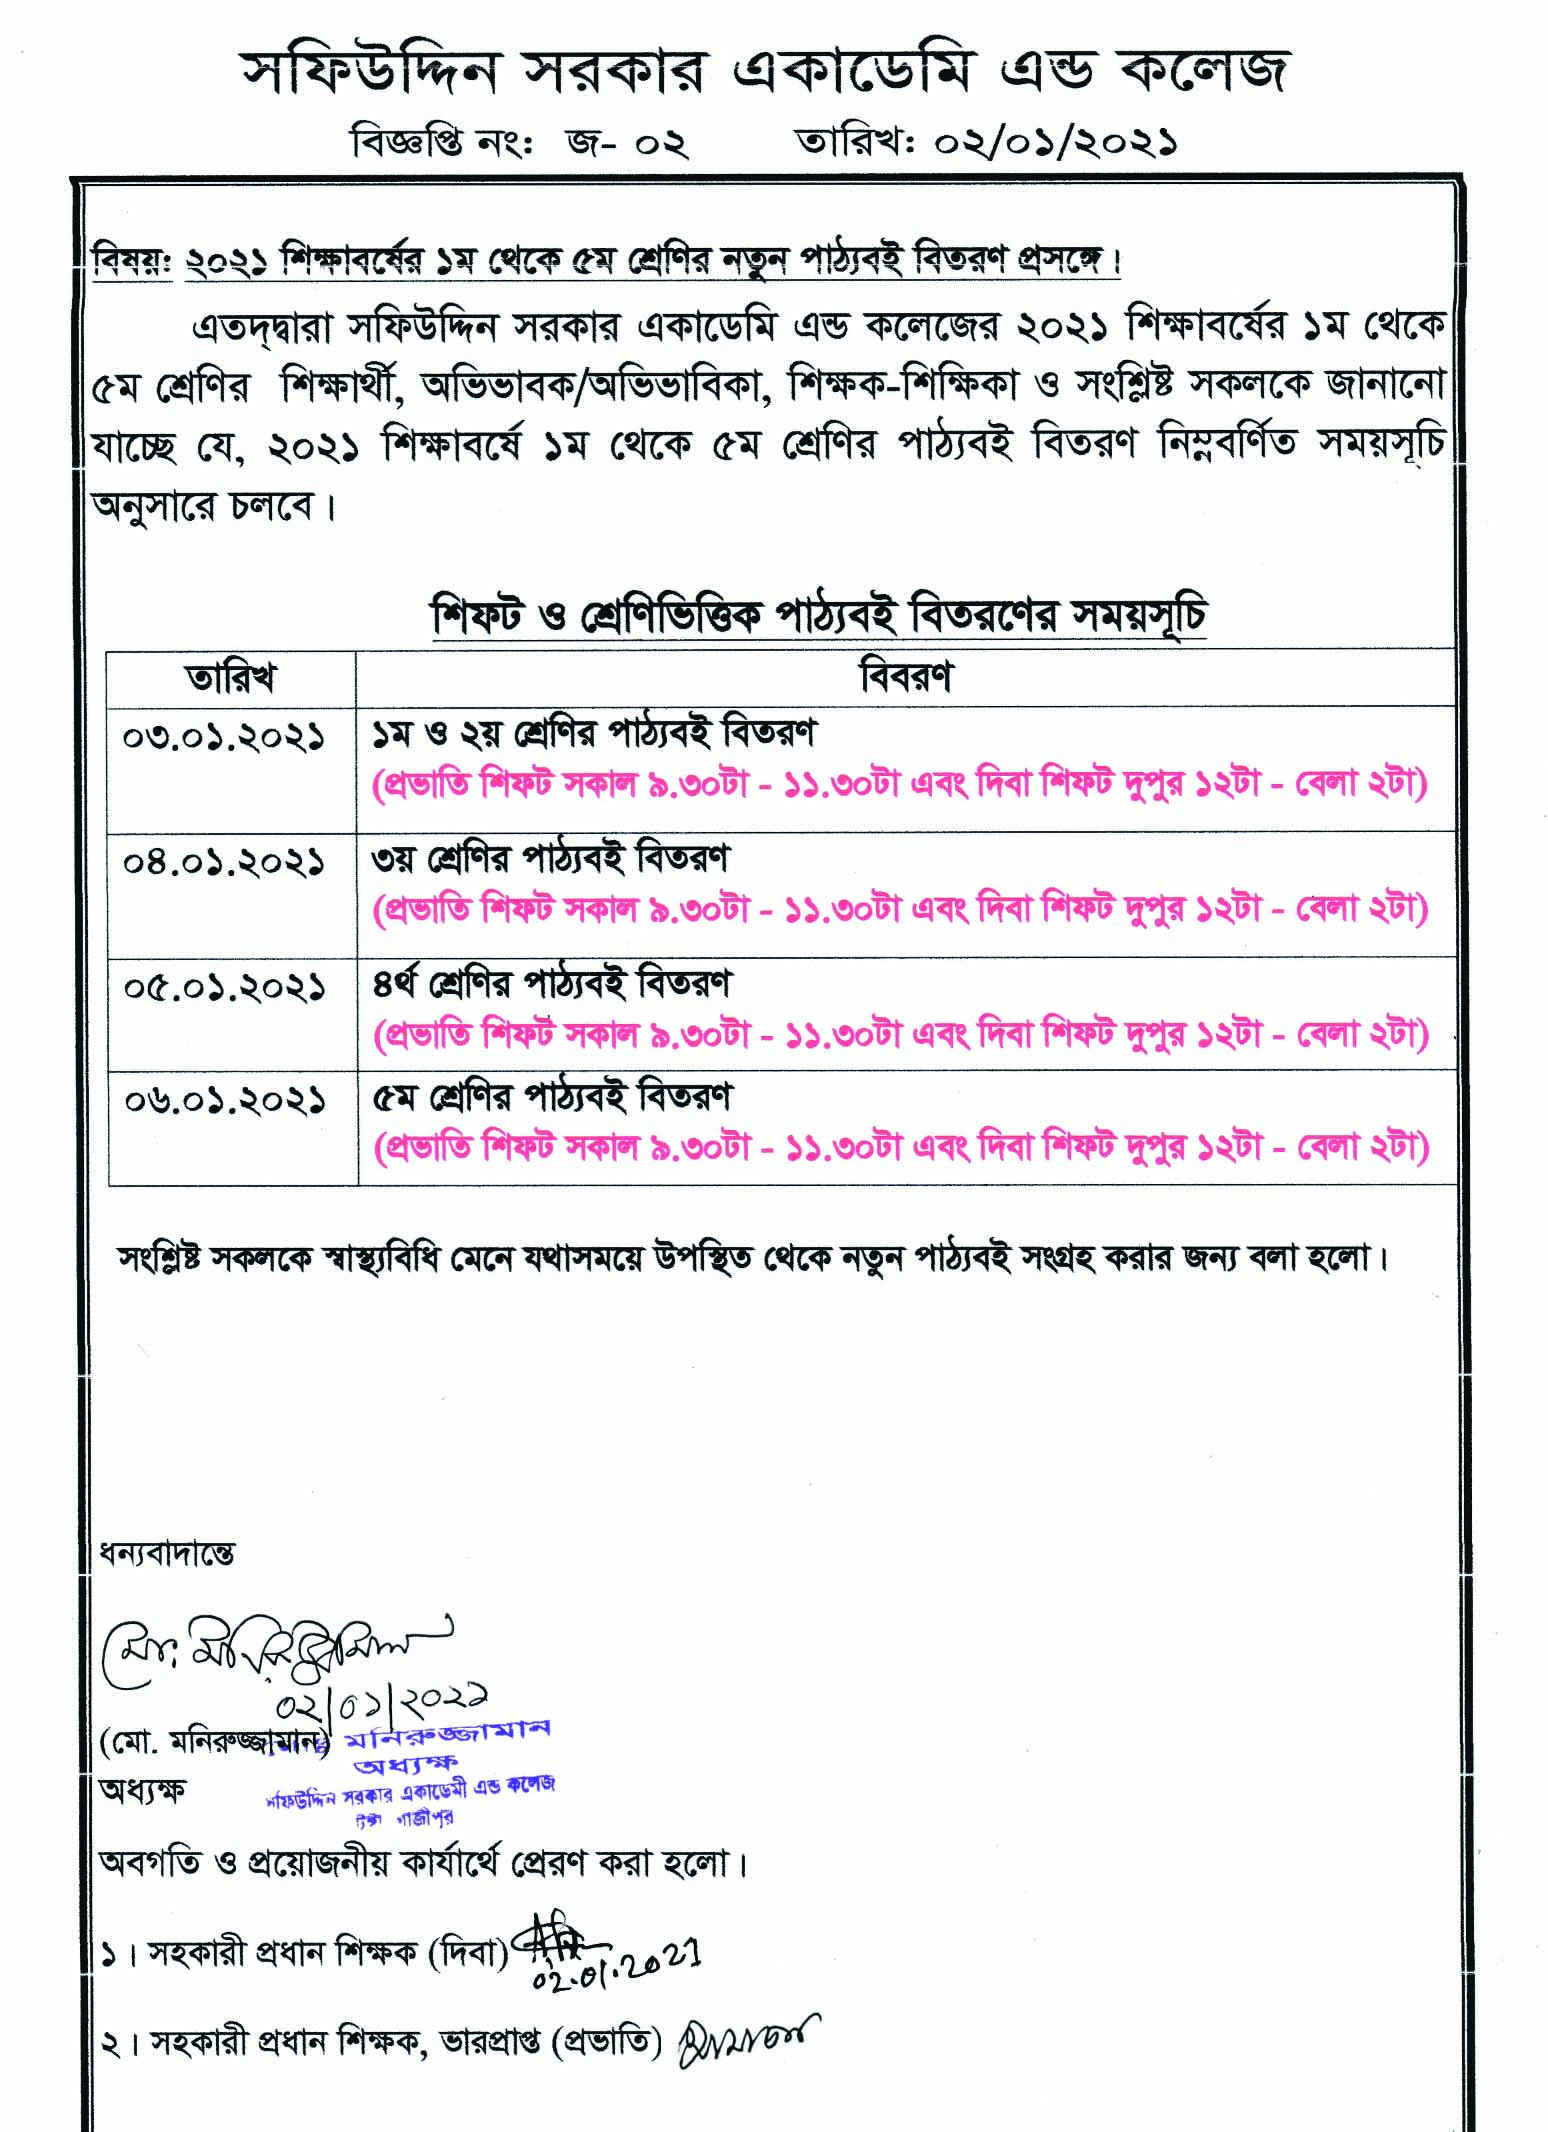 সফিউদ্দিন সরকার একাডেমি এন্ড কলেজ
বিজ্ঞপ্তি নং: জ- ০২ তারিখ: ০২/০১/২০২১
বিষয়: ২০২১ শিক্ষাবর্ষের ১ম থেকে ৫ম শ্রেণির নতুন পাঠ্যবই বিতরণ প্রসঙ্গে।
এতদ্দ্বারা সফিউদ্দিন সরকার একাডেমি এন্ড কলেজের ২০২১ শিক্ষাবর্ষের ১ম থেকে
৫ম শ্রেণির শিক্ষার্থী, অভিভাবক/অভিভাবিকা, শিক্ষক-শিক্ষিকা ও সংশ্লিষ্ট সকলকে জানানো
যাচ্ছে যে, ২০২১ শিক্ষাবর্ষে ১ম থেকে ৫ম শ্রেণির পাঠ্যবই বিতরণ নিম্নবর্ণিত সময়সূচি
অনুসারে চলবে।
শিফট ও শ্রেণিভিত্তিক পাঠ্যবই বিতরণের সময়সূচি
তারিখ বিবরণ
০৩.০১.২০২১ ১ম ও ২য় শ্রেণির পাঠ্যবই বিতরণ
(প্রভাতি শিফট সকাল ৯.৩০টা - ১১.৩০টা এবং দিবা শিফট দুপুর ১২টা - বেলা ২টা)
০৪.০১.২০২১ ৩য় শ্রেণির পাঠ্যবই বিতরণ
(প্রভাতি শিফট সকাল ৯.৩০টা - ১১.৩০টা এবং দিবা শিফট দুপুর ১২টা - বেলা ২টা)
০৫.০১.২০২১ ৪র্থ শ্রেণির পাঠ্যবই বিতরণ
(প্রভাতি শিফট সকাল ৯.৩০টা - ১১.৩০টা এবং দিবা শিফট দুপুর ১২টা - বেলা ২টা)
০৬.০১.২০২১ ৫ম শ্রেণির পাঠ্যবই বিতরণ
(প্রভাতি শিফট সকাল ৯.৩০টা - ১১.৩০টা এবং দিবা শিফট দুপুর ১২টা - বেলা ২টা)
সংশ্লিষ্ট সকলকে স্বাস্থ্যবিধি মেনে যথাসময়ে উপস্থিত থেকে নতুন পাঠ্যবই সংগ্রহ করার জন্য বলা হলো।
ধন্যবাদান্তে
০২/০১/২০২১
(মো. মনিরুজ্জামান) মনিরুজ্জামান
অধ্যক্ষ
অধ্যক্ষ
সফিউদ্দিন সরকার একাডেমী এন্ড কলেজ
গাজীপুর
অবগতি ও প্রয়োজনীয় কার্যার্থে প্রেরণ করা হলো।
১। সহকারী প্রধান শিক্ষক (দিবা)
02.01.2021
২। সহকারী প্রধান শিক্ষক, ভারপ্রাপ্ত (প্রভাতি)